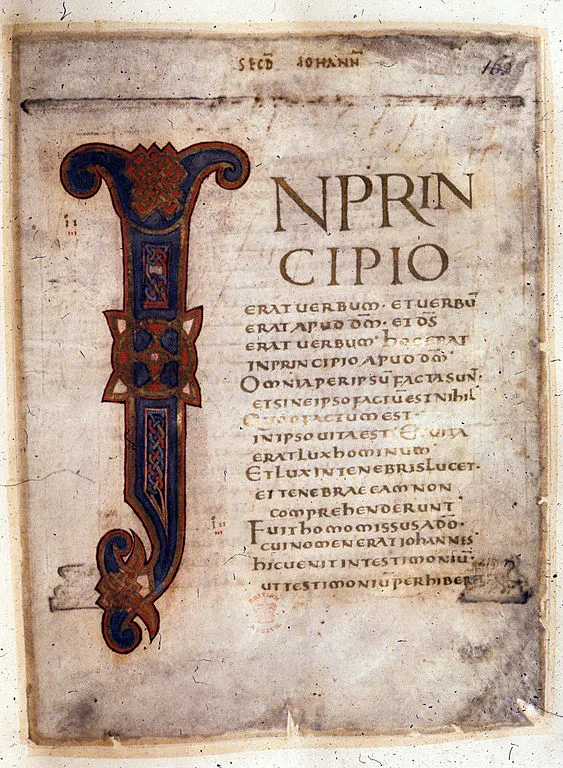 SECD IOHANN
169
IN PRIN
CIPIO
ERAT UERBUM · ET UERBŪ
ERAT APUD DM̄ · ET DS̄
ERAT UERBUM · hOC ERAT
IN PRINCIPIO APUD DM̄
OMNIA PER IPSŪ FACTA SUN ·
ET SINE IPSO FACTŪ EST NIhIL
QUOD FACTUM EST ·
IN IPSO UITA EST · ET UITA
ERAT LUX hOMINUM
ET LUX IN TENEBRIS LUCET ·
ET TENEBRAE EAM NON
COMPREhENDERUNT
FUIT hOMO MISSUS A DO ·
CUI NOMEN ERAT IOhANNES
hIC UENIT IN TESTIMONIŪ ·
UT TESTIMONIŪ PERhIBER